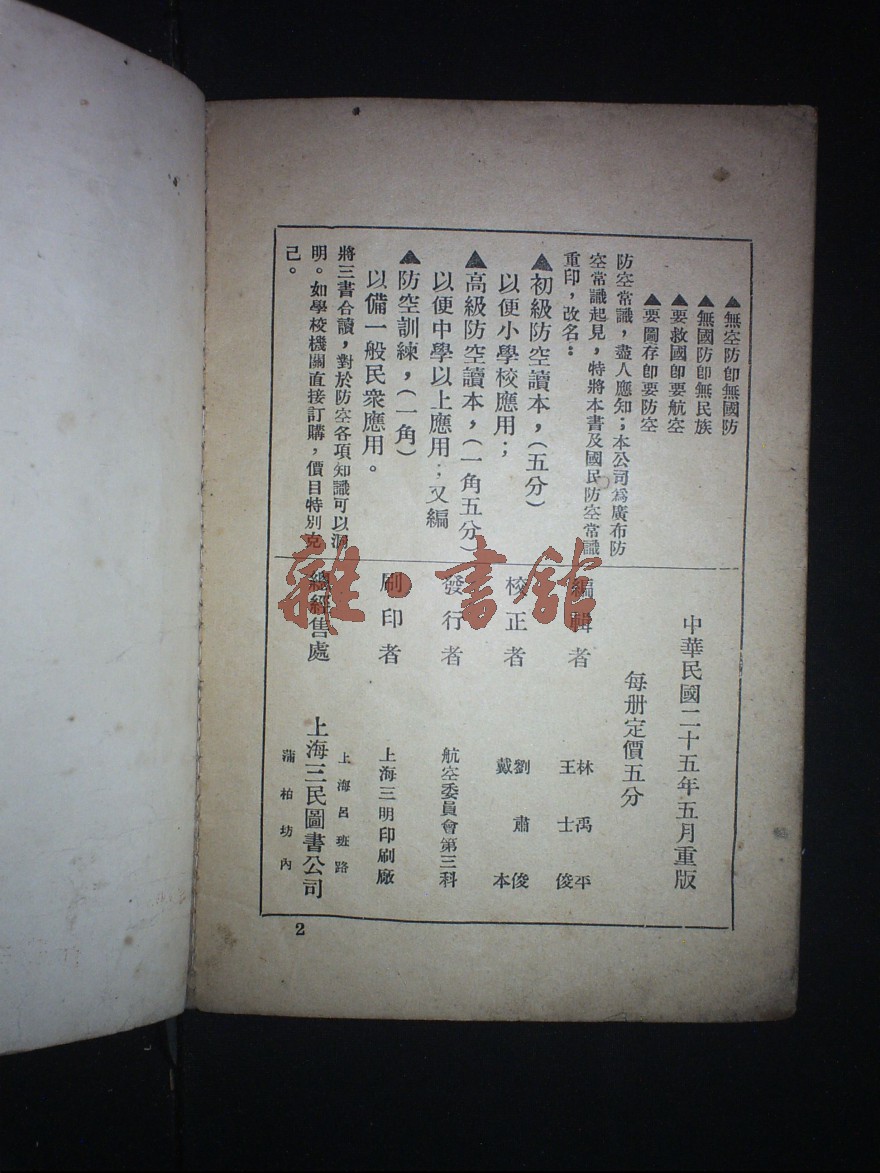 ▲無空防卽無國防
▲無國防卽無民族
▲要救國卽要航空
▲要圖存卽要防空
防空常識，盡人應知；本公司爲廣布防
空常識起見，特將本書及國民防空常識
重印，改名：
▲初級防空讀本，（五分）
以便小學校應用；
▲高級防空讀本，（一角五分）
以便中學以上應用；又編
▲防空訓練，（一角）
以備一般民衆應用。
將三書合讀，對於防空各項知識可以洞
明。如學校機關直接訂購，價目特別克
己。
中華民國二十五年五月重版
每册定價五分
編輯者 林禹平
王士俊
校正者 劉肅俊
戴本
發行者 航空委員會第三科
刷印者 上海三明印刷廠
總經售處 上海三民圖書公司
上海呂班路
蒲柏坊內
2
雜·書館